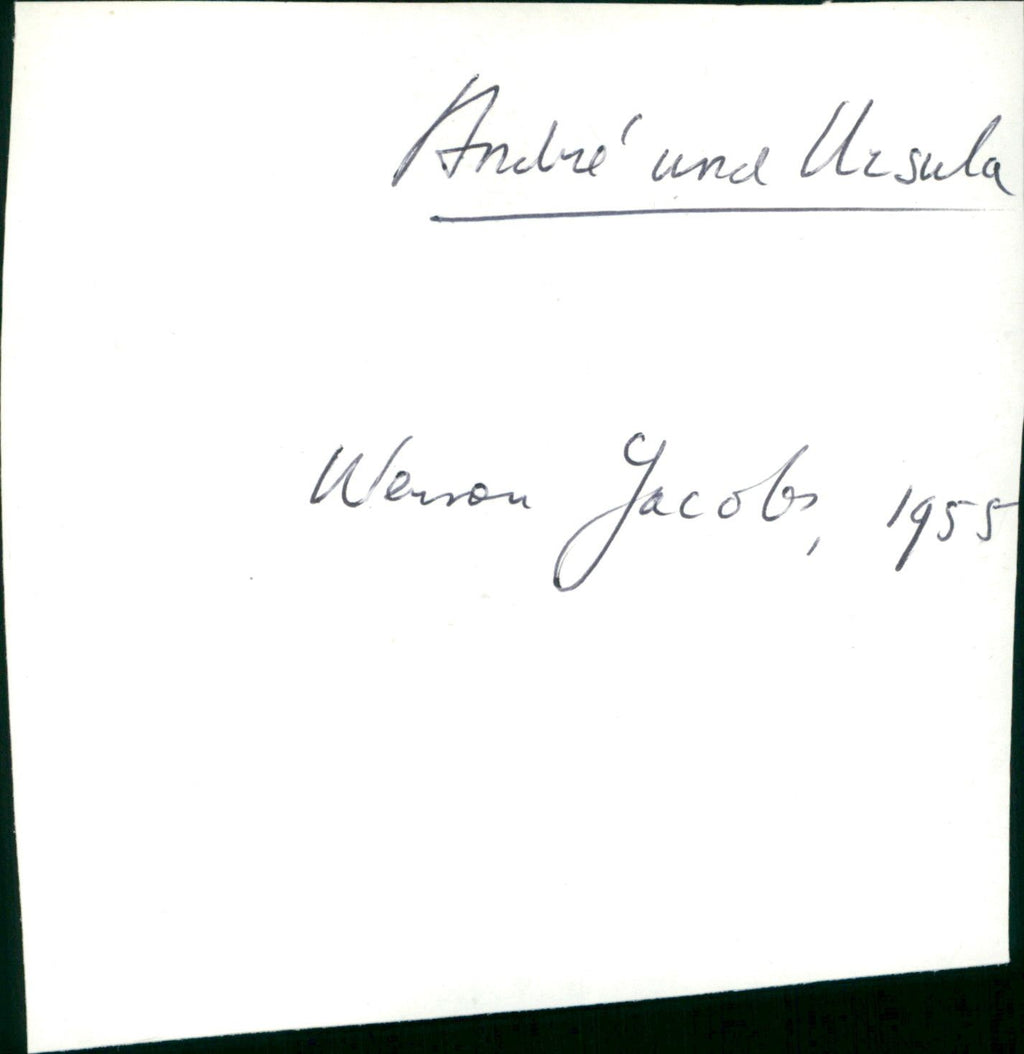 André und Ursula
Werner Jacobs, 1955